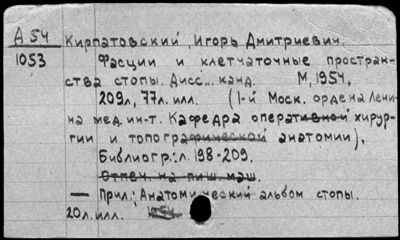 А 54 Кирпатовский, Игорь Дмитриевич.
1053 Фасции и клетчаточные простран-
ства стопы. Дисс... канд. М, 1954,
209л, 77л. илл. (1-й Моск. ордена Лени-
на мед. ин-т. Кафедра оперативной хирур-
гии и топографической анатомии).
Библиогр.: л. 198-209.
Отпеч. на пиш. маш.
— Прил.: Анатомический альбом стопы.
20л. илл.